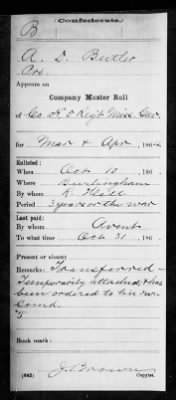 Confederate.
B
A. D. Butler
Pvt.
Appears on
Company Muster Roll
of Co. Regt Miss. Cav.
for Mar & Apr, 186
Enlisted:
When Oct 10, 186 .
Where Burlingham
By whom
Period 3 years or the war
Last paid:
By whom Avent
To what time Oct 31, 186 .
Present or absent
Remarks: Transferred—
Temporarily attached, & has
been ordered to his own
Comd.
Book mark:
(642)
Copyist.